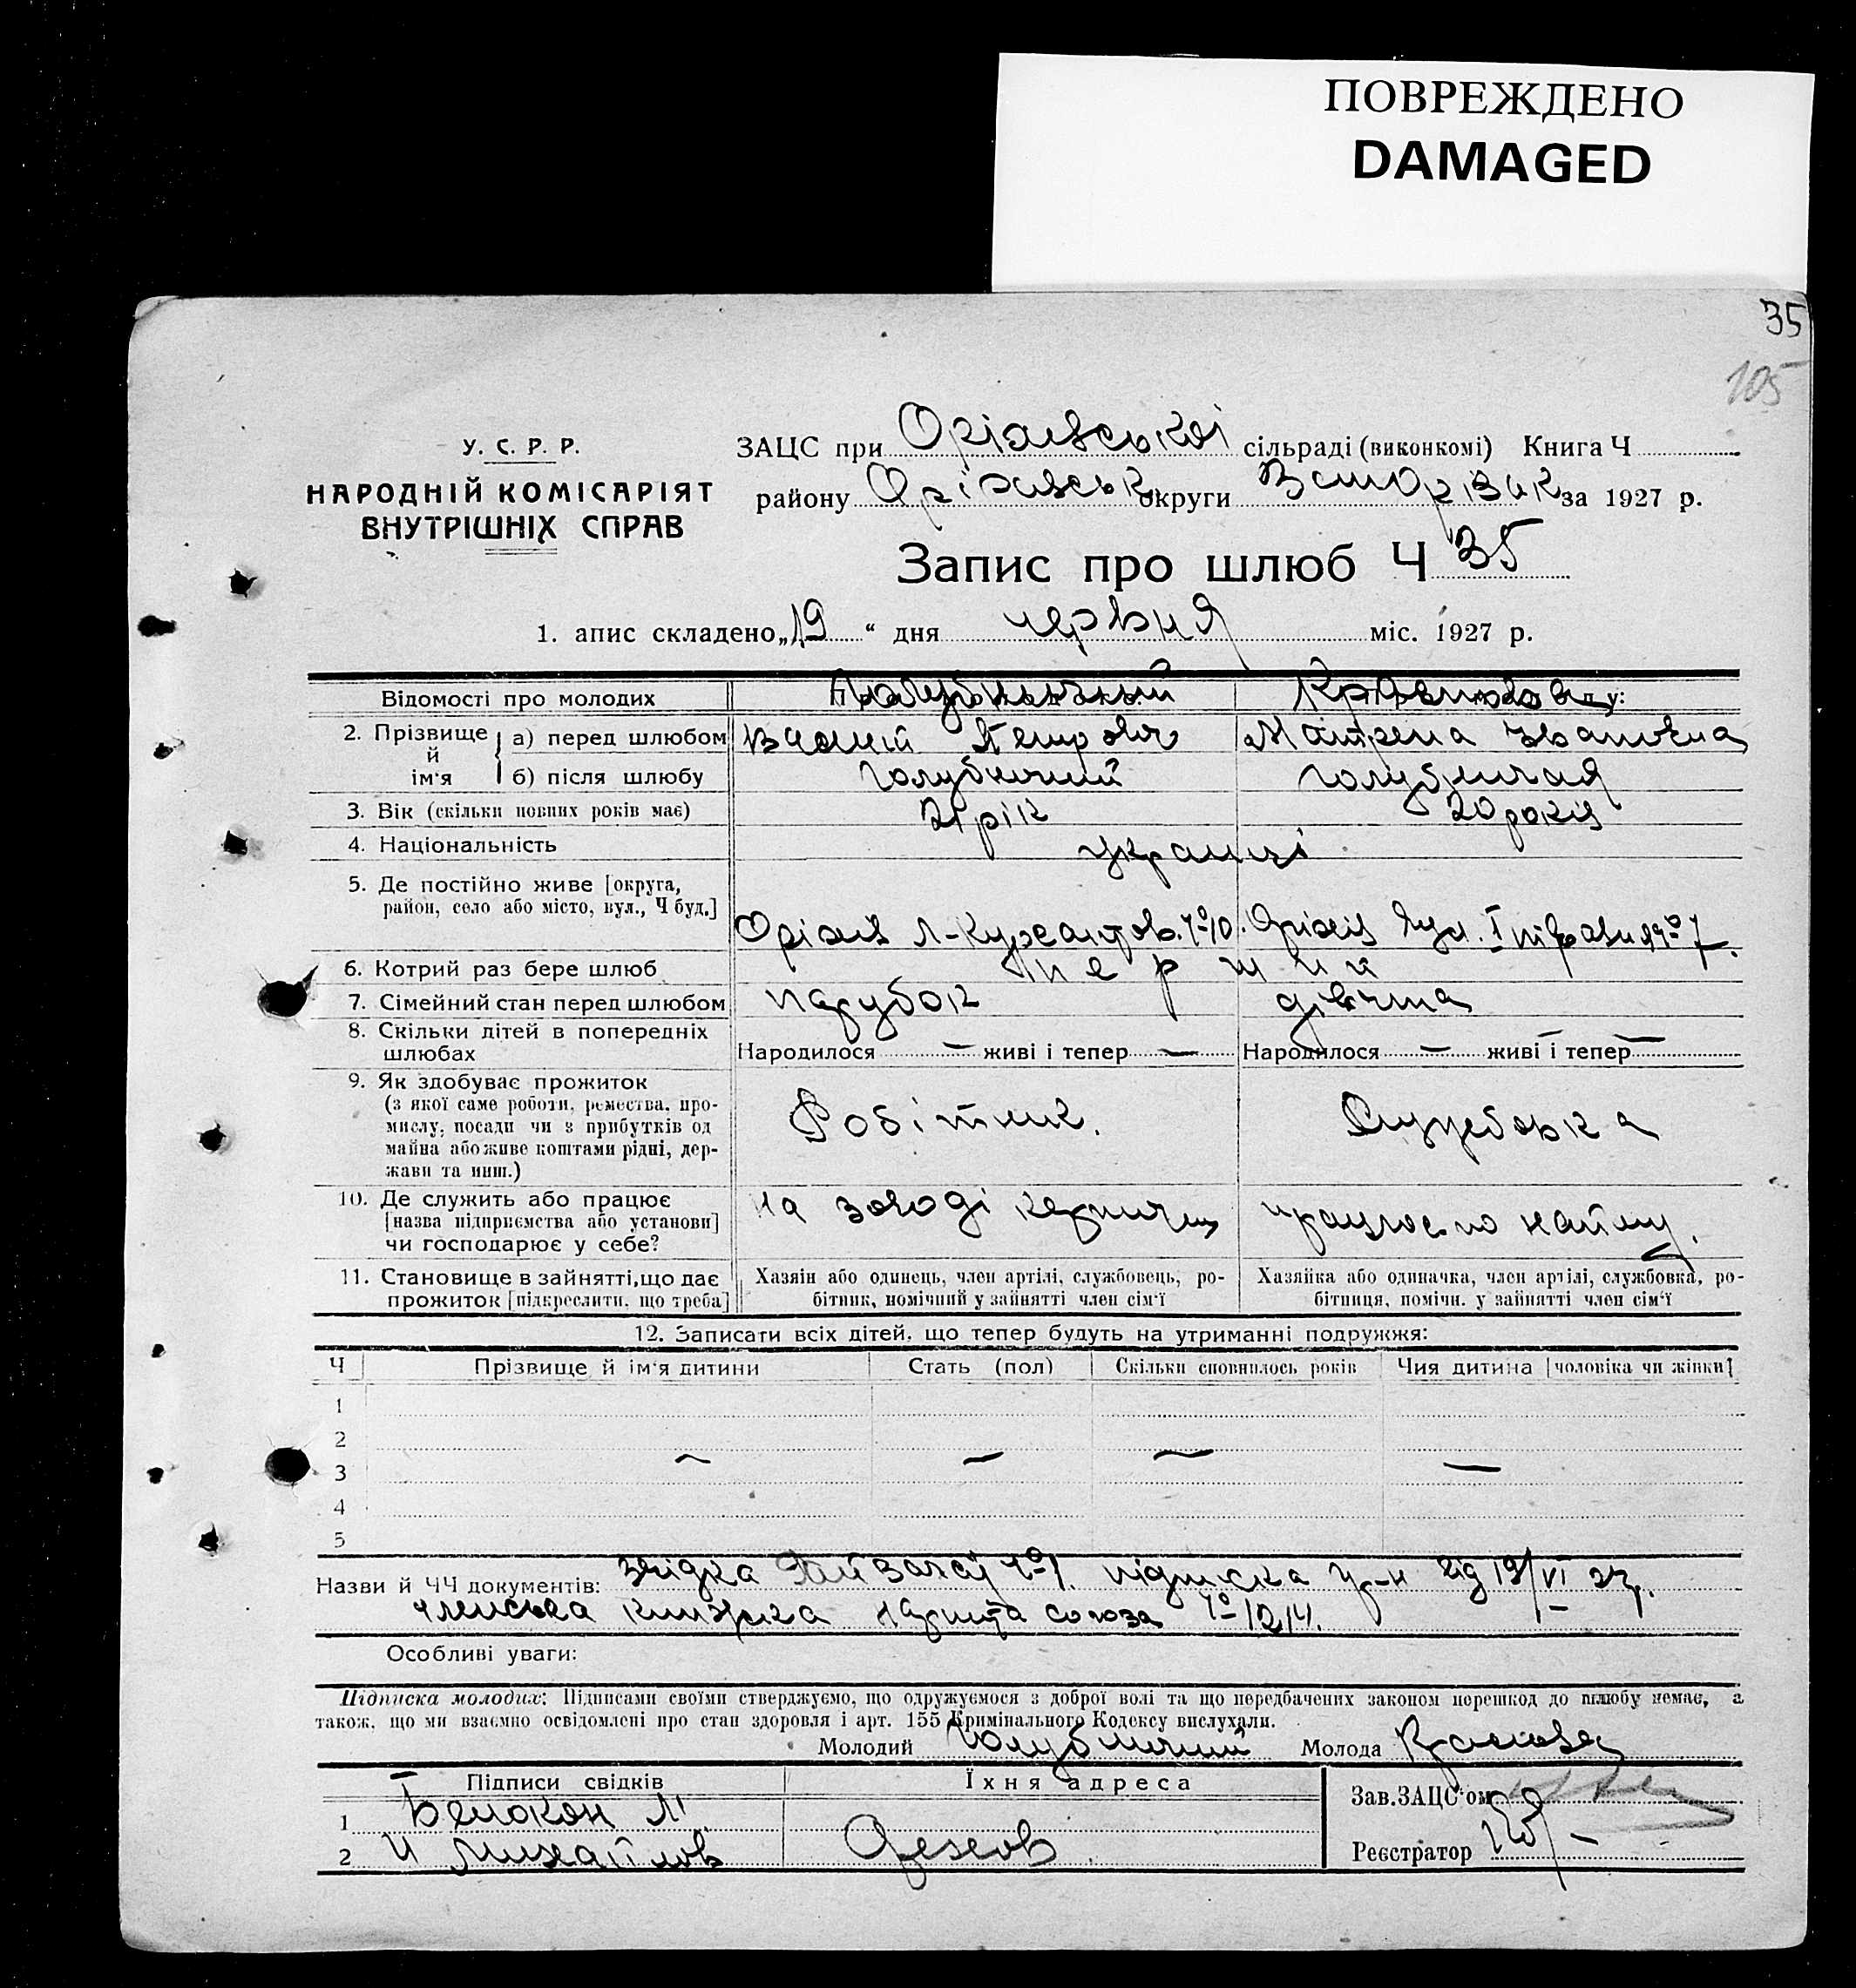 ПОВРЕЖДЕНО
DAMAGED
35
105
У. С. Р. Р.
НАРОДНІЙ КОМІСАРІЯТ
ВНУТРІШНІХ СПРАВ
ЗАЦС при Оріхівської сільраді (виконкомі) Книга Ч
району Оріхівськ округи Запоріжж за 1927 р.
Запис про шлюб Ч 35
1. апис складено „19“ дня червня міс. 1927 р.
Відомості про молодих Голубничый
2. Прізвище й ім'я а) перед шлюбом Петрович Матрена Івановна
б) після шлюбу Голубничий Голубничая
3. Вік (скільки повних років має) 21 рік 20 років
4. Національність українці
5. Де постійно живе [округа,
район, село або місто, вул., Ч буд.] Оріхів Л-Курсантов. Ч 10. Оріхів вул. І травня Ч 7.
6. Котрий раз бере шлюб перший
7. Сімейний стан перед шлюбом парубок дівчина
8. Скільки дітей в попередніх
шлюбах Народилося — живі і тепер — Народилося — живі і тепер —
9. Як здобуває прожиток
(з якої саме роботи, ремества, про-
мислу, посади чи з прибутків од
майна або живе коштами рідні, дер-
жави та инш.) Робітник. Службовка
10. Де служить або працює
[назва підприємства або установи]
чи господарює у себе? на заводі працює по найму.
11. Становище в зайнятті, що дає
прожиток [підкреслити, що треба]
Хазяїн або одинець, член артілі, службовець, ро-
бітник, помічний у зайнятті член сім'ї
Хазяйка або одиначка, член артілі, службовка, ро-
бітниця, помічн. у зайнятті член сім'ї
12. Записати всіх дітей, що тепер будуть на утриманні подружжя:
Ч Прізвище й ім'я дитини Стать (пол) Скільки сповнилось років Чия дитина [чоловіка чи жінки]
1
2
3 — — — —
4
5
Назви й ЧЧ документів: Звідка підписка від 19/VI 27р.
членська книжка союза Ч 1214.
Особливі уваги:
Підписка молодих: Підписами своїми стверджуємо, що одружуємося з доброї волі та що передбачених законом перешкод до шлюбу немає, а
також, що ми взаємно освідомлені про стан здоровля і арт. 155 Кримінального Кодексу вислухали.
Молодий Голубничий Молода
Підписи свідків Їхня адреса
Зав. ЗАЦС'ом
1 Белокон
2 Михайлов Орехов
Реєстратор